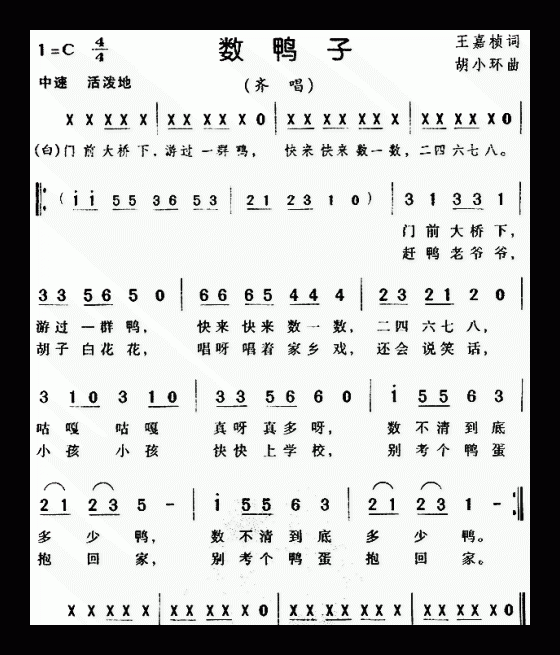 1=C 4/4 数鸭子 王嘉桢词
中速 活泼地 (齐唱) 胡小环曲
X X X X X | X X X X X O | X X X X X X X | X X X X X O |
(白)门前大桥下,游过一群鸭, 快来快来数一数,二四六七八。
‖: ( i i 5 5 3 6 5 3 | 2 1 2 3 1 0 ) | 3 1 3 3 1 |
门前大桥下,
赶鸭老爷爷,
3 3 5 6 5 0 | 6 6 6 5 4 4 4 | 2 3 2 1 2 0 |
游过一群鸭, 快来快来数一数, 二四六七八,
胡子白花花, 唱呀唱着家乡戏, 还会说笑话,
3 1 0 3 1 0 | 3 3 5 6 6 0 | i 5 5 6 3 |
咕嘎 咕嘎 真呀真多呀, 数不清到底
小孩 小孩 快快上学校, 别考个鸭蛋
2 1 2 3 5 - | i 5 5 6 3 | 2 1 2 3 1 - :‖
多少鸭, 数不清到底 多少鸭。
抱回家, 别考个鸭蛋 抱回家。
X X X X X | X X X X X O | X X X X X X X | X X X X X O ‖